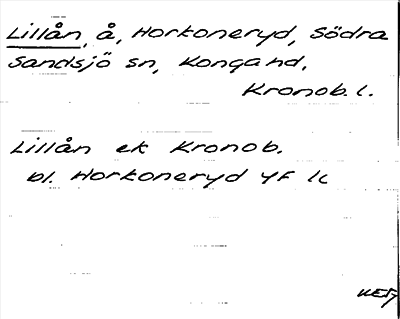 Lillån, å, Horkoneryd, Södra
Sandsjö sn, Konga hd,
Kronob. l.
Lillån ek Kronob.
bl. Horkoneryd 4F lc